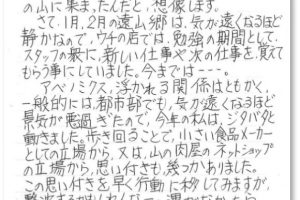 の山に集まったんだと、想像します。
さて、1月、2月の遠山郷は、気が遠くなるほど
静かなので、ウチの店では、勉強の期間として、
スタッフの衆に、新しい仕事や次の仕事を、覚えて
もらう事にしていました。今までは---。
アベノミクス、浮かれる関係はともかく、
一般的には、都市部でも、気が遠くなるほど
景気が悪過ぎたので、今年の私は、ジタバタと
動きました。歩き回ることで、小さい食品メーカー
としての立場から、又は、山の肉屋のネットショップ
の立場から、思い付きも、幾つかありました。
この思い付きを早く行動に移してみますが、